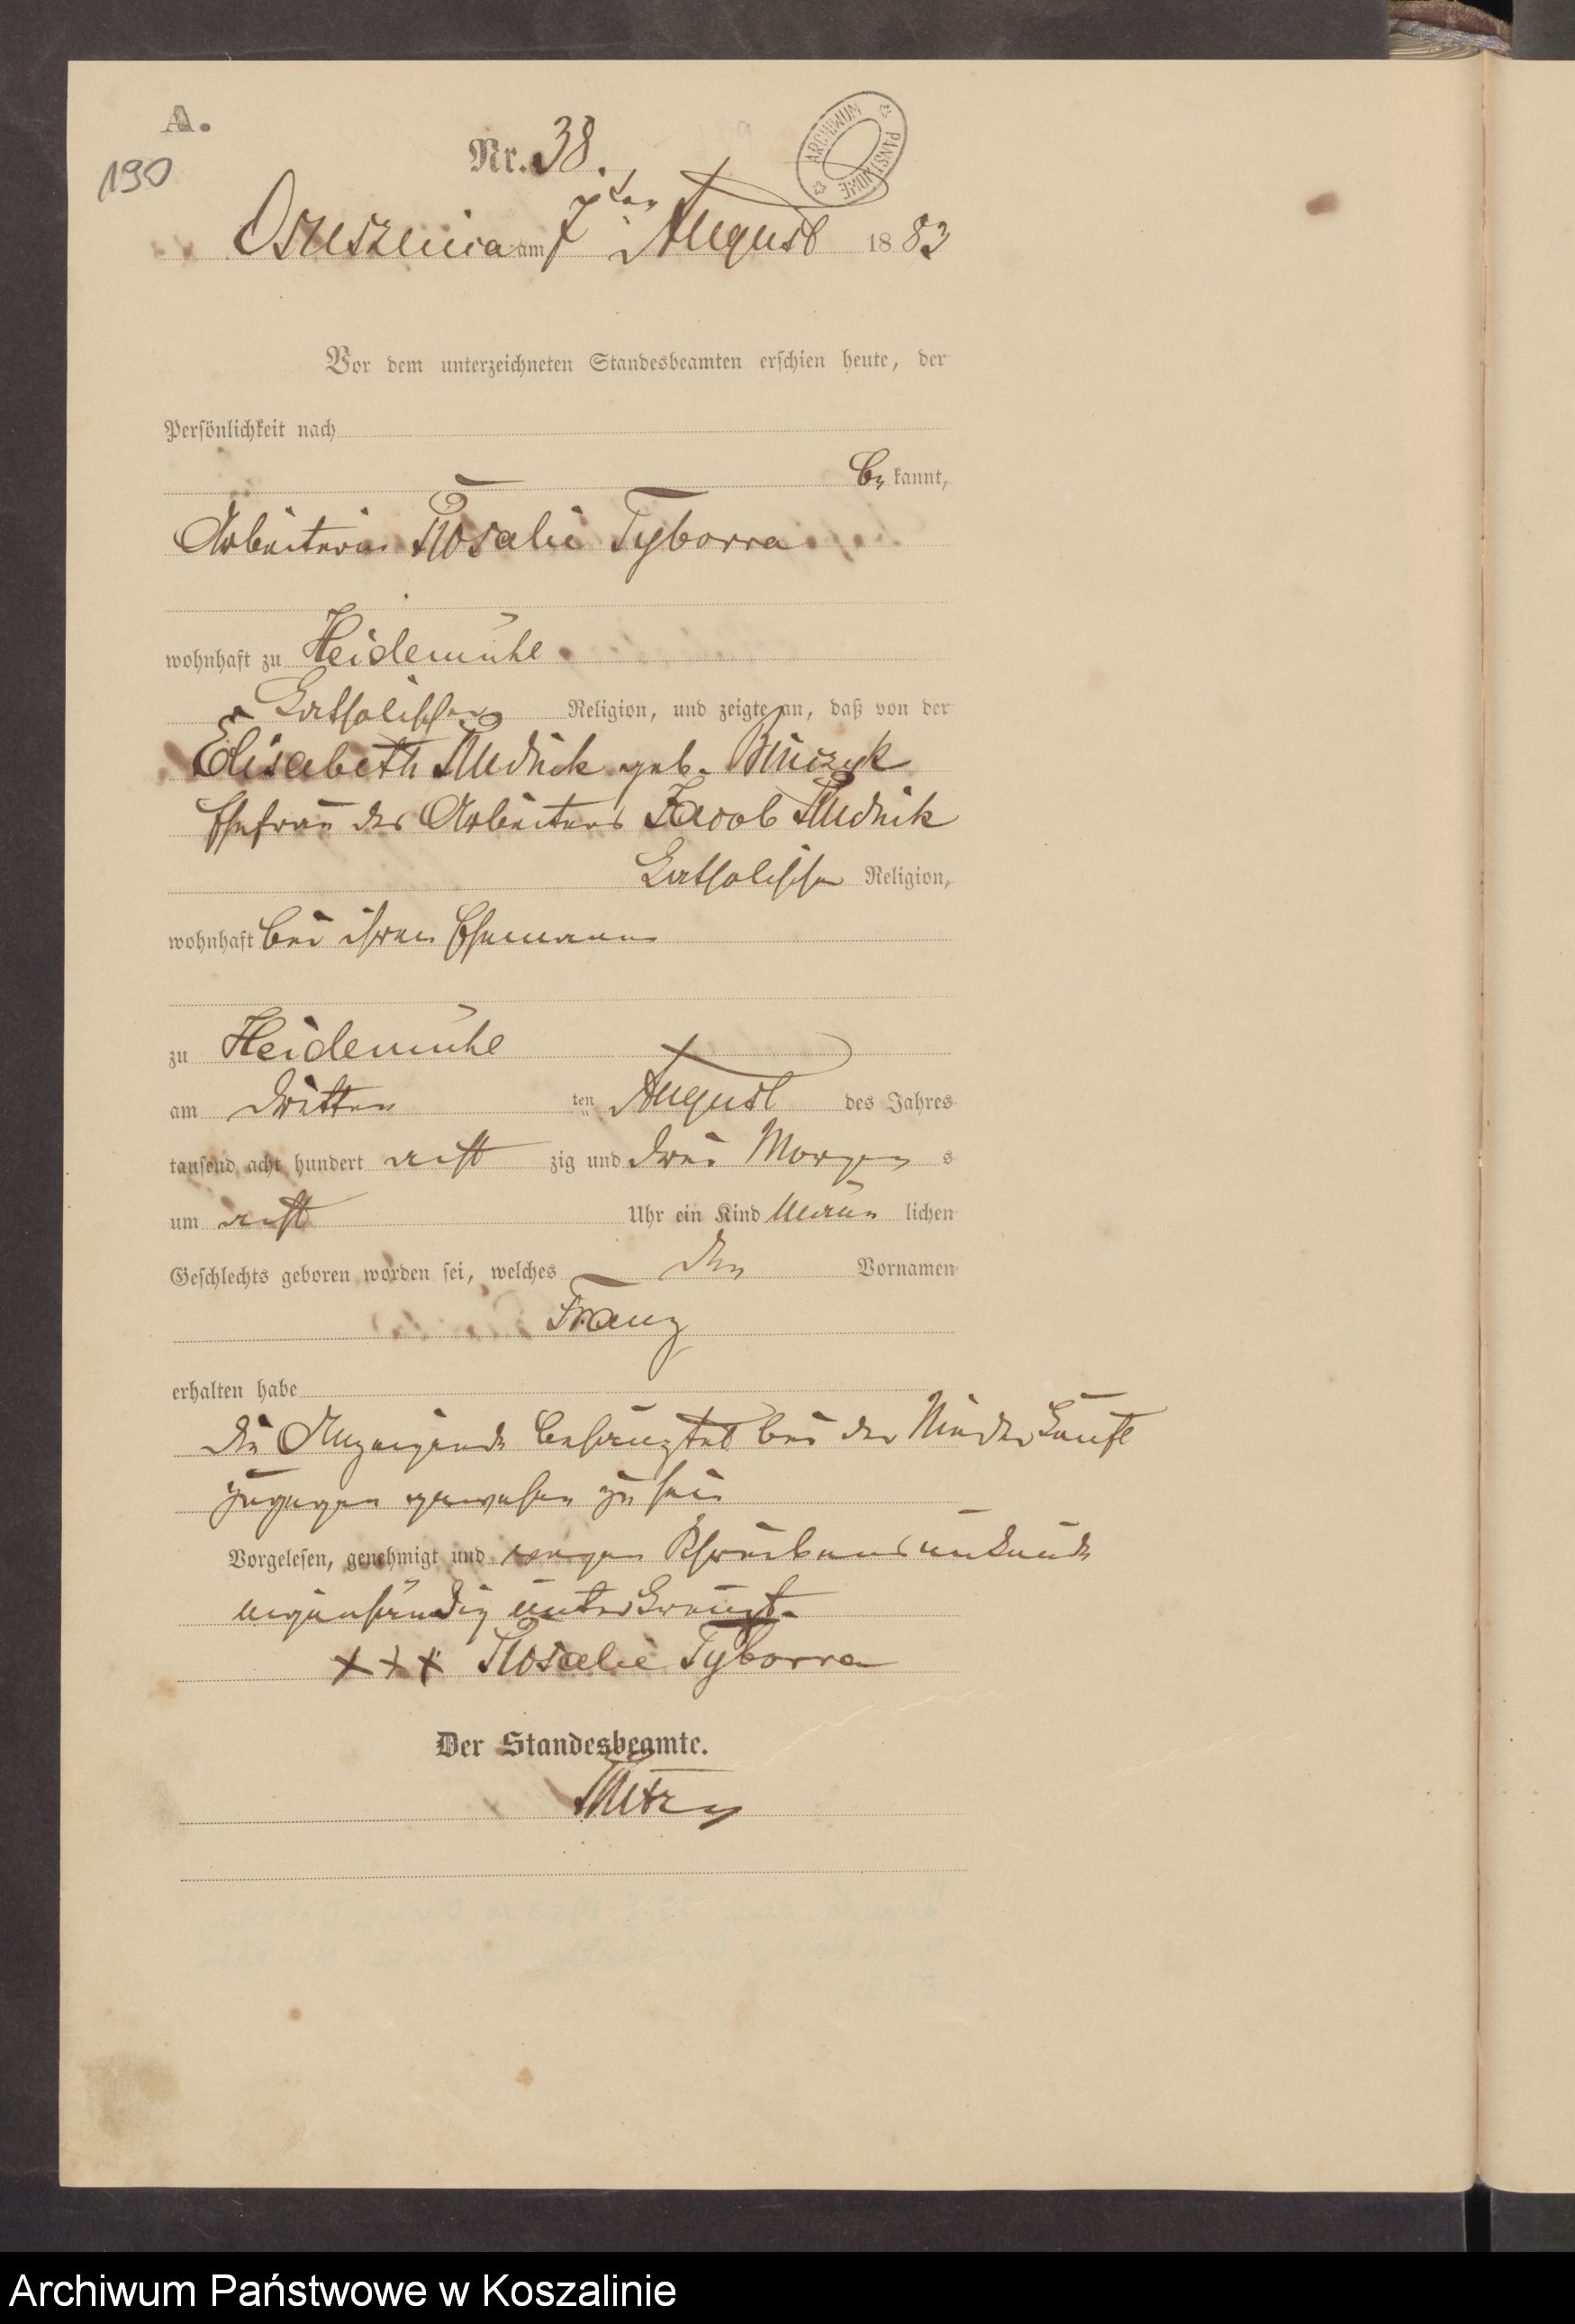 A.
190
Nr. 38.
ARCHIWUM PAŃSTWOWE
Osuszenica am 7ten August 1883
Vor dem unterzeichneten Standesbeamten erschien heute, der
Persönlichkeit nach
be kannt,
Arbeiterin Rosalie Tyborra
wohnhaft zu Heidemühl
katholischer Religion, und zeigte an, daß von der
Elisabeth Rudnick geb. Binczyk
Ehefrau des Arbeiters Jacob Rudnik
katholischer Religion,
wohnhaft bei ihrem Ehemann
zu Heidemühl
am dritten ten August des Jahres
tausend acht hundert acht zig und drei Morgen s
um acht Uhr ein Kind männ lichen
Geschlechts geboren worden sei, welches den Vornamen
Franz
erhalten habe
die Anzeigende bezeugt bei der Niederkunft
zugegen gewesen zu sein
Vorgelesen, genehmigt und wegen Schreibensunkunde
eigenhändig unterkreuzt.
x x x Rosalie Tyborra
Der Standesbeamte.
Archiwum Państwowe w Koszalinie